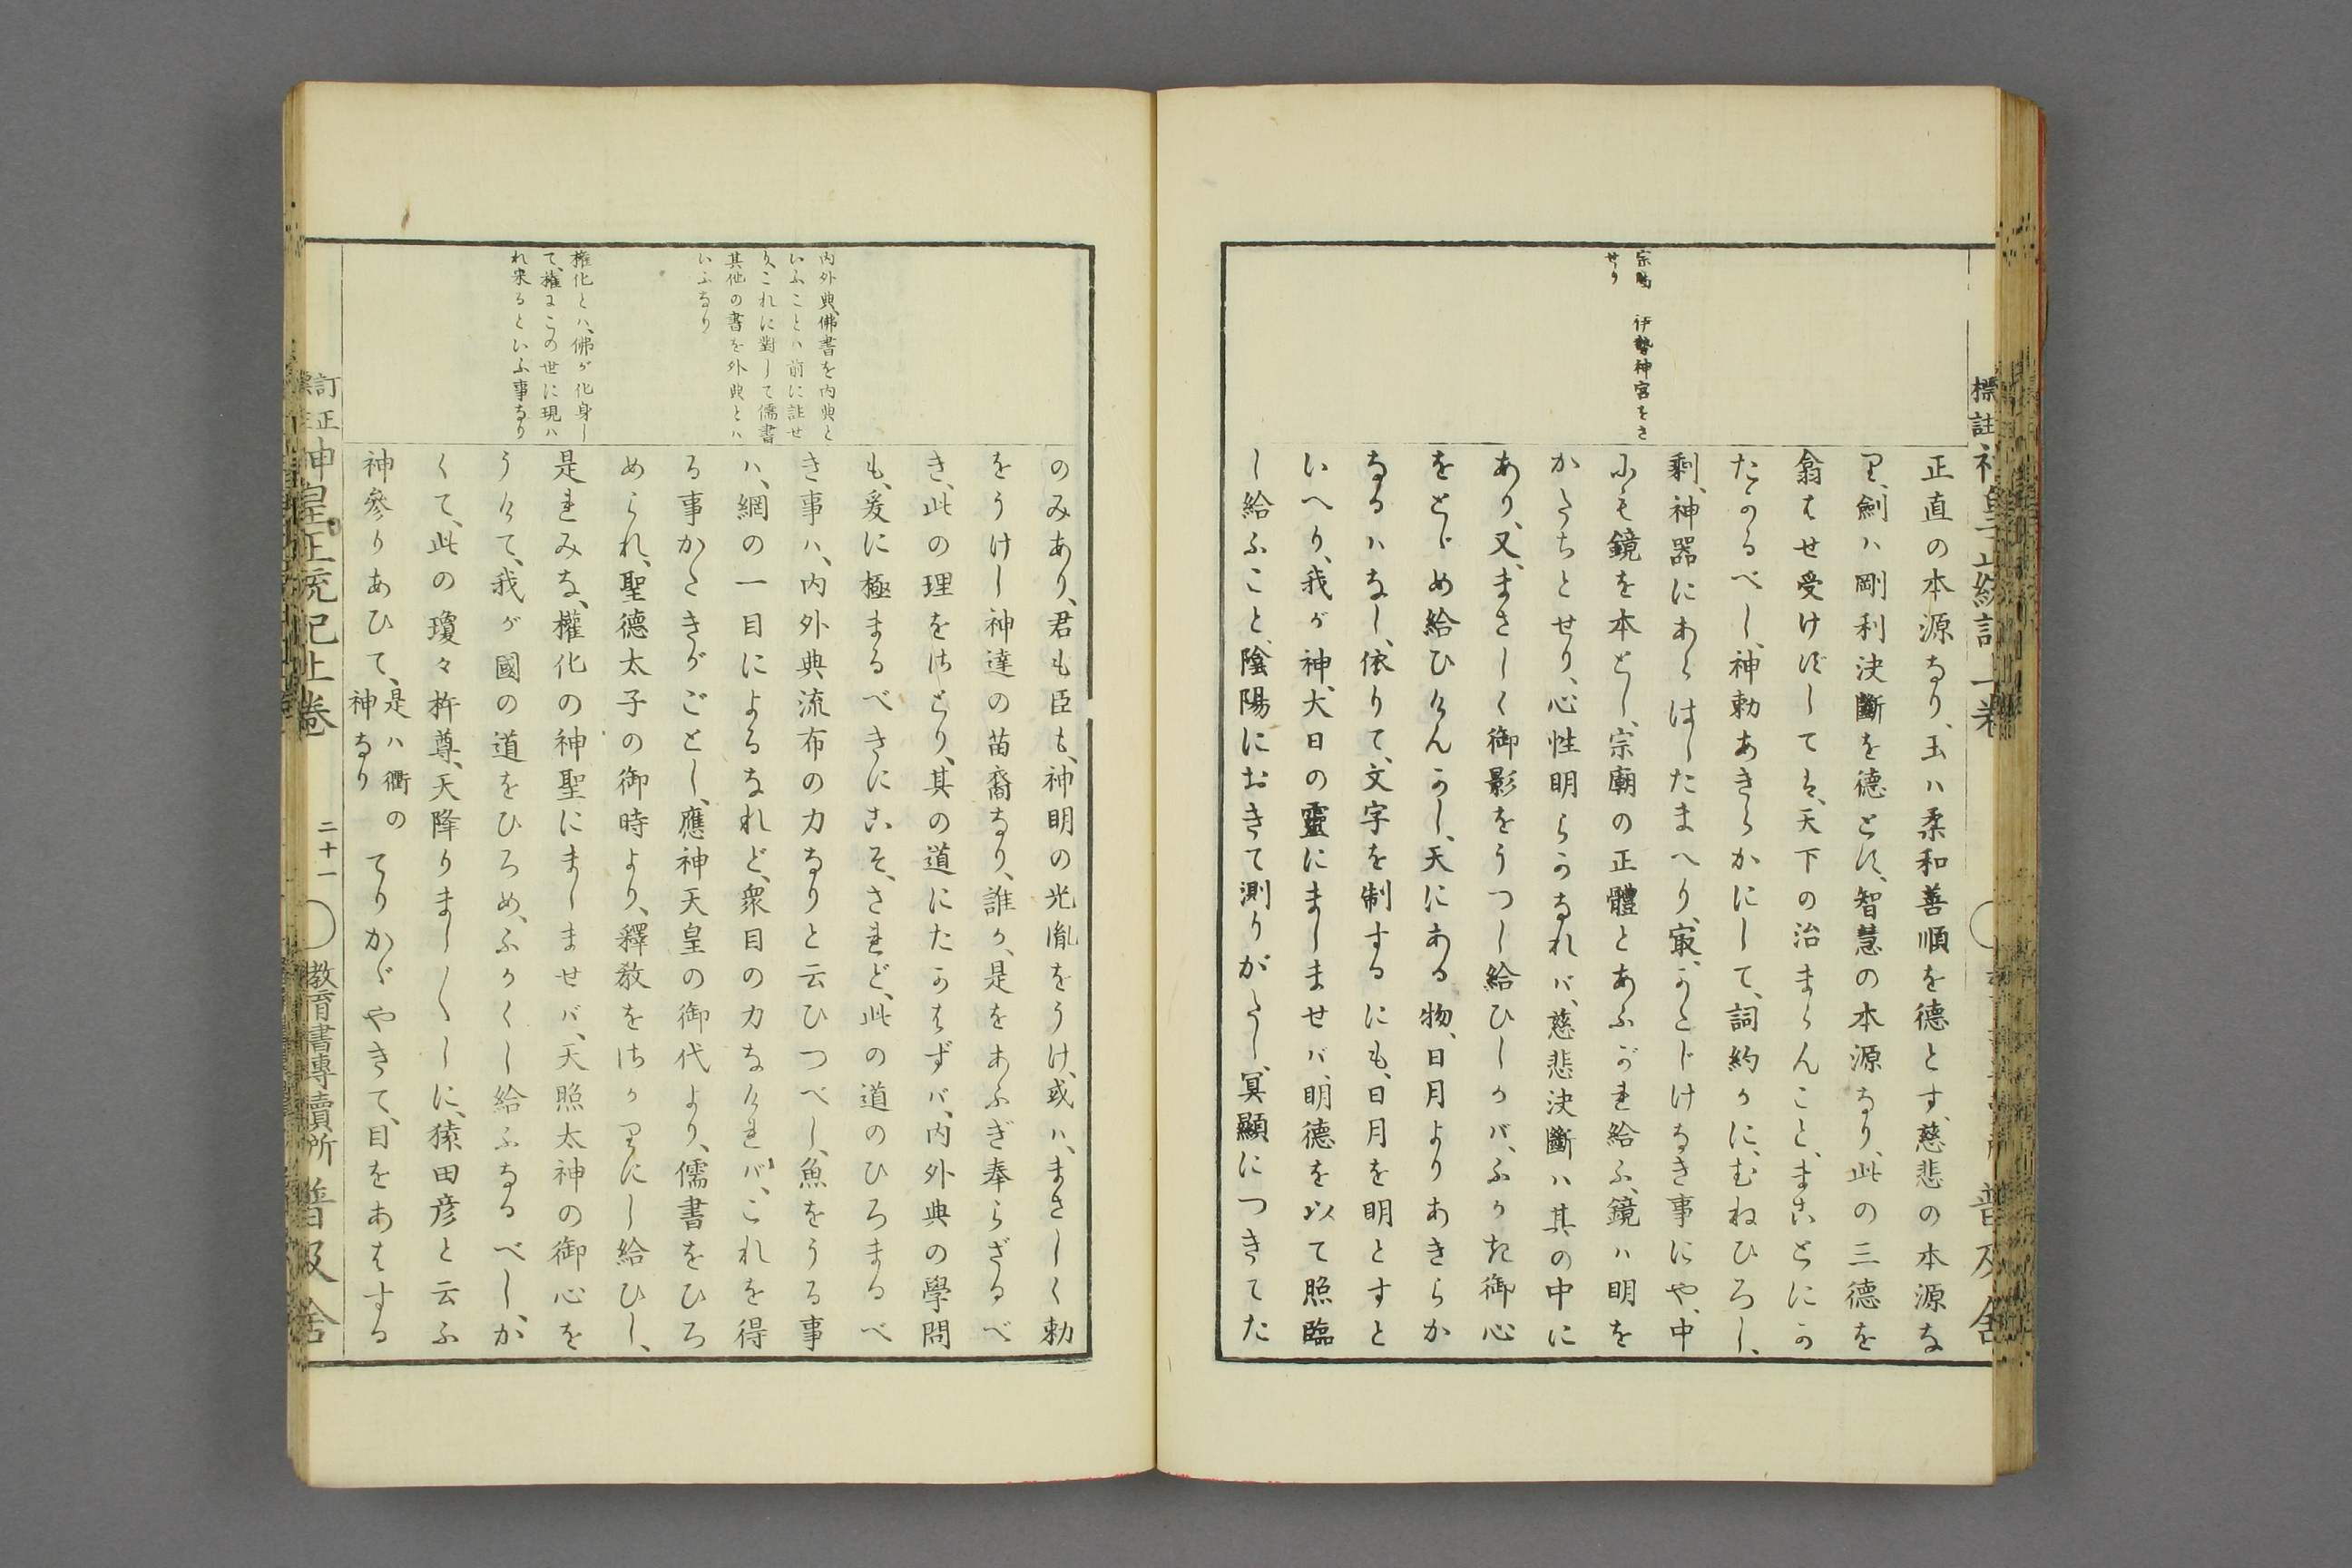 宗廟　伊勢神宮をさ
せり
正直の本源なり、玉ハ柔和善順を德とす、慈悲の本源な
り、劍ハ剛利決斷を德とす、智慧の本源なり、此の三德を
翕はせ受けずしては、天下の治まらんこと、まことにか
たかるべし、神勅あきらかにして、詞約かに、むねひろし、
剩、神器にあらはしたまへり、最、かたじけなき事にや、中
にも鏡を本とし、宗廟の正體とあふがれ給ふ、鏡ハ明を
かたちとせり、心性明らかなれバ、慈悲決斷ハ其の中に
あり、又、まさしく御影をうつし給ひしかバ、ふかき御心
をとゞめ給ひけんかし、天にある物、日月よりあきらか
なるハなし、依りて、文字を制するにも、日月を明とすと
いへり、我が神、大日の靈にましませバ、明德を以て照臨
し給ふこと、陰陽におきて測りがたし、冥顯につきてた
標註 神皇正統記上卷
普及舍
内外典、佛書を内典と
いふことハ前に註せ
り、これに對して儒書
其他の書を外典とハ
いふなり
權化とハ、佛が化身し
て、權にこの世に現ハ
れ來るといふ事なり
のみあり、君も臣も、神明の光胤をうけ、或ハ、まさしく勅
をうけし神達の苗裔なり、誰か、是をあふぎ奉らざるべ
き、此の理をさとり、其の道にたがはずバ、内外典の學問
も、爰に極まるべきにこそ、されど、此の道のひろまるべ
き事ハ、内外典流布の力なりと云ひつべし、魚をうる事
ハ、網の一目によるなれど、衆目の力なければ、これを得
る事かたきがごとし、應神天皇の御代より、儒書をひろ
められ、聖德太子の御時より、釋教をさかりにし給ひし、
是れみな、權化の神聖にましませバ、天照太神の御心を
うけて、我が國の道をひろめ、ふかくし給ふなるべし、か
くて、此の瓊々杵尊、天降りまし〱しに、猿田彦と云ふ
神參りあひて、是ハ衢の神なりてりかゞやきて、目をあはする
訂正標註 神皇正統記上卷
二十一
教育書專賣所 普及舍